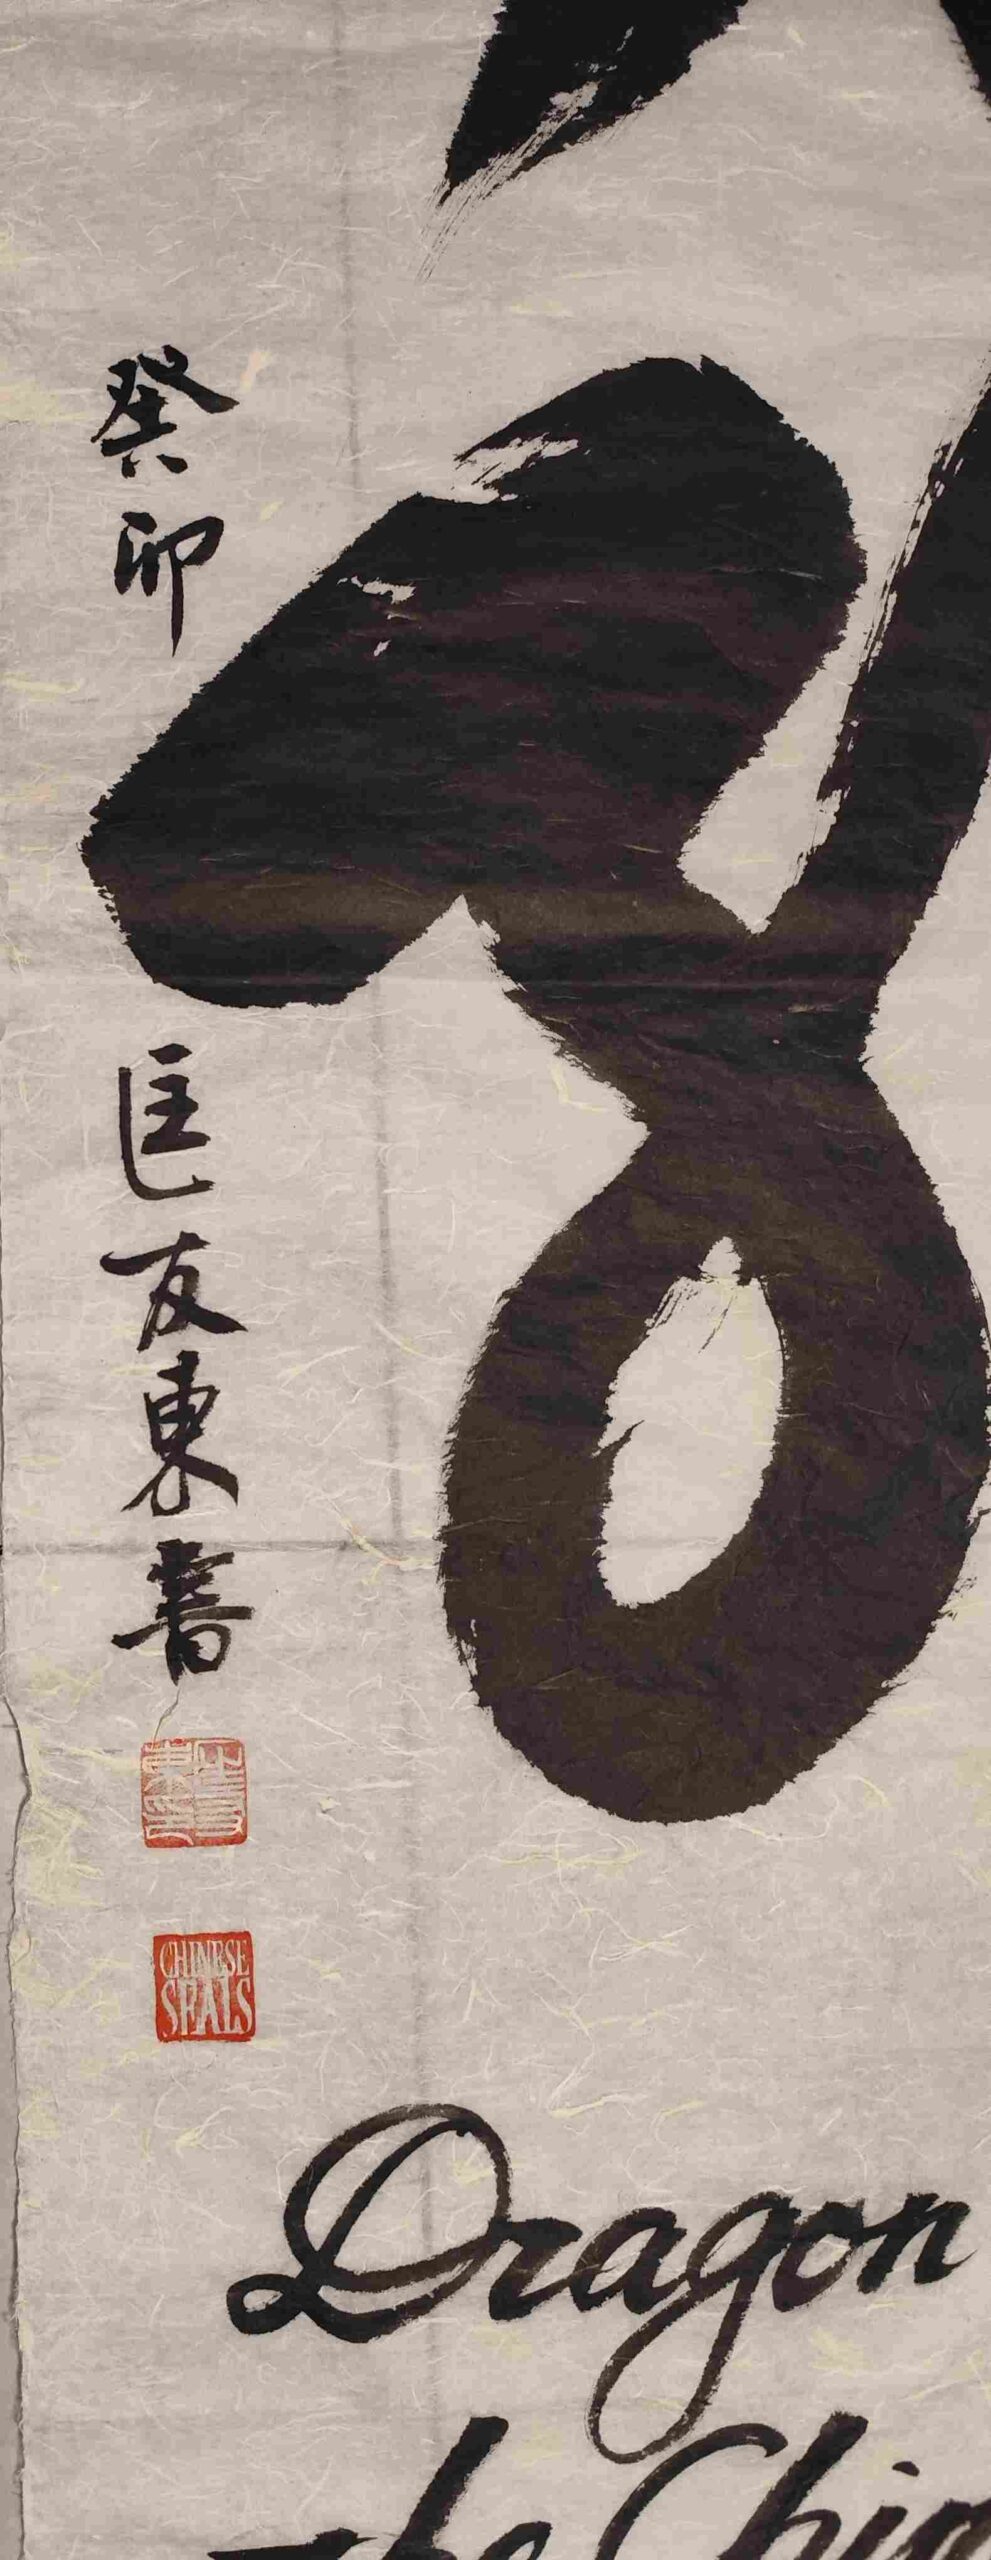 癸卯
匡友東書
CHINESE
SEALS
Dragon
the Chin